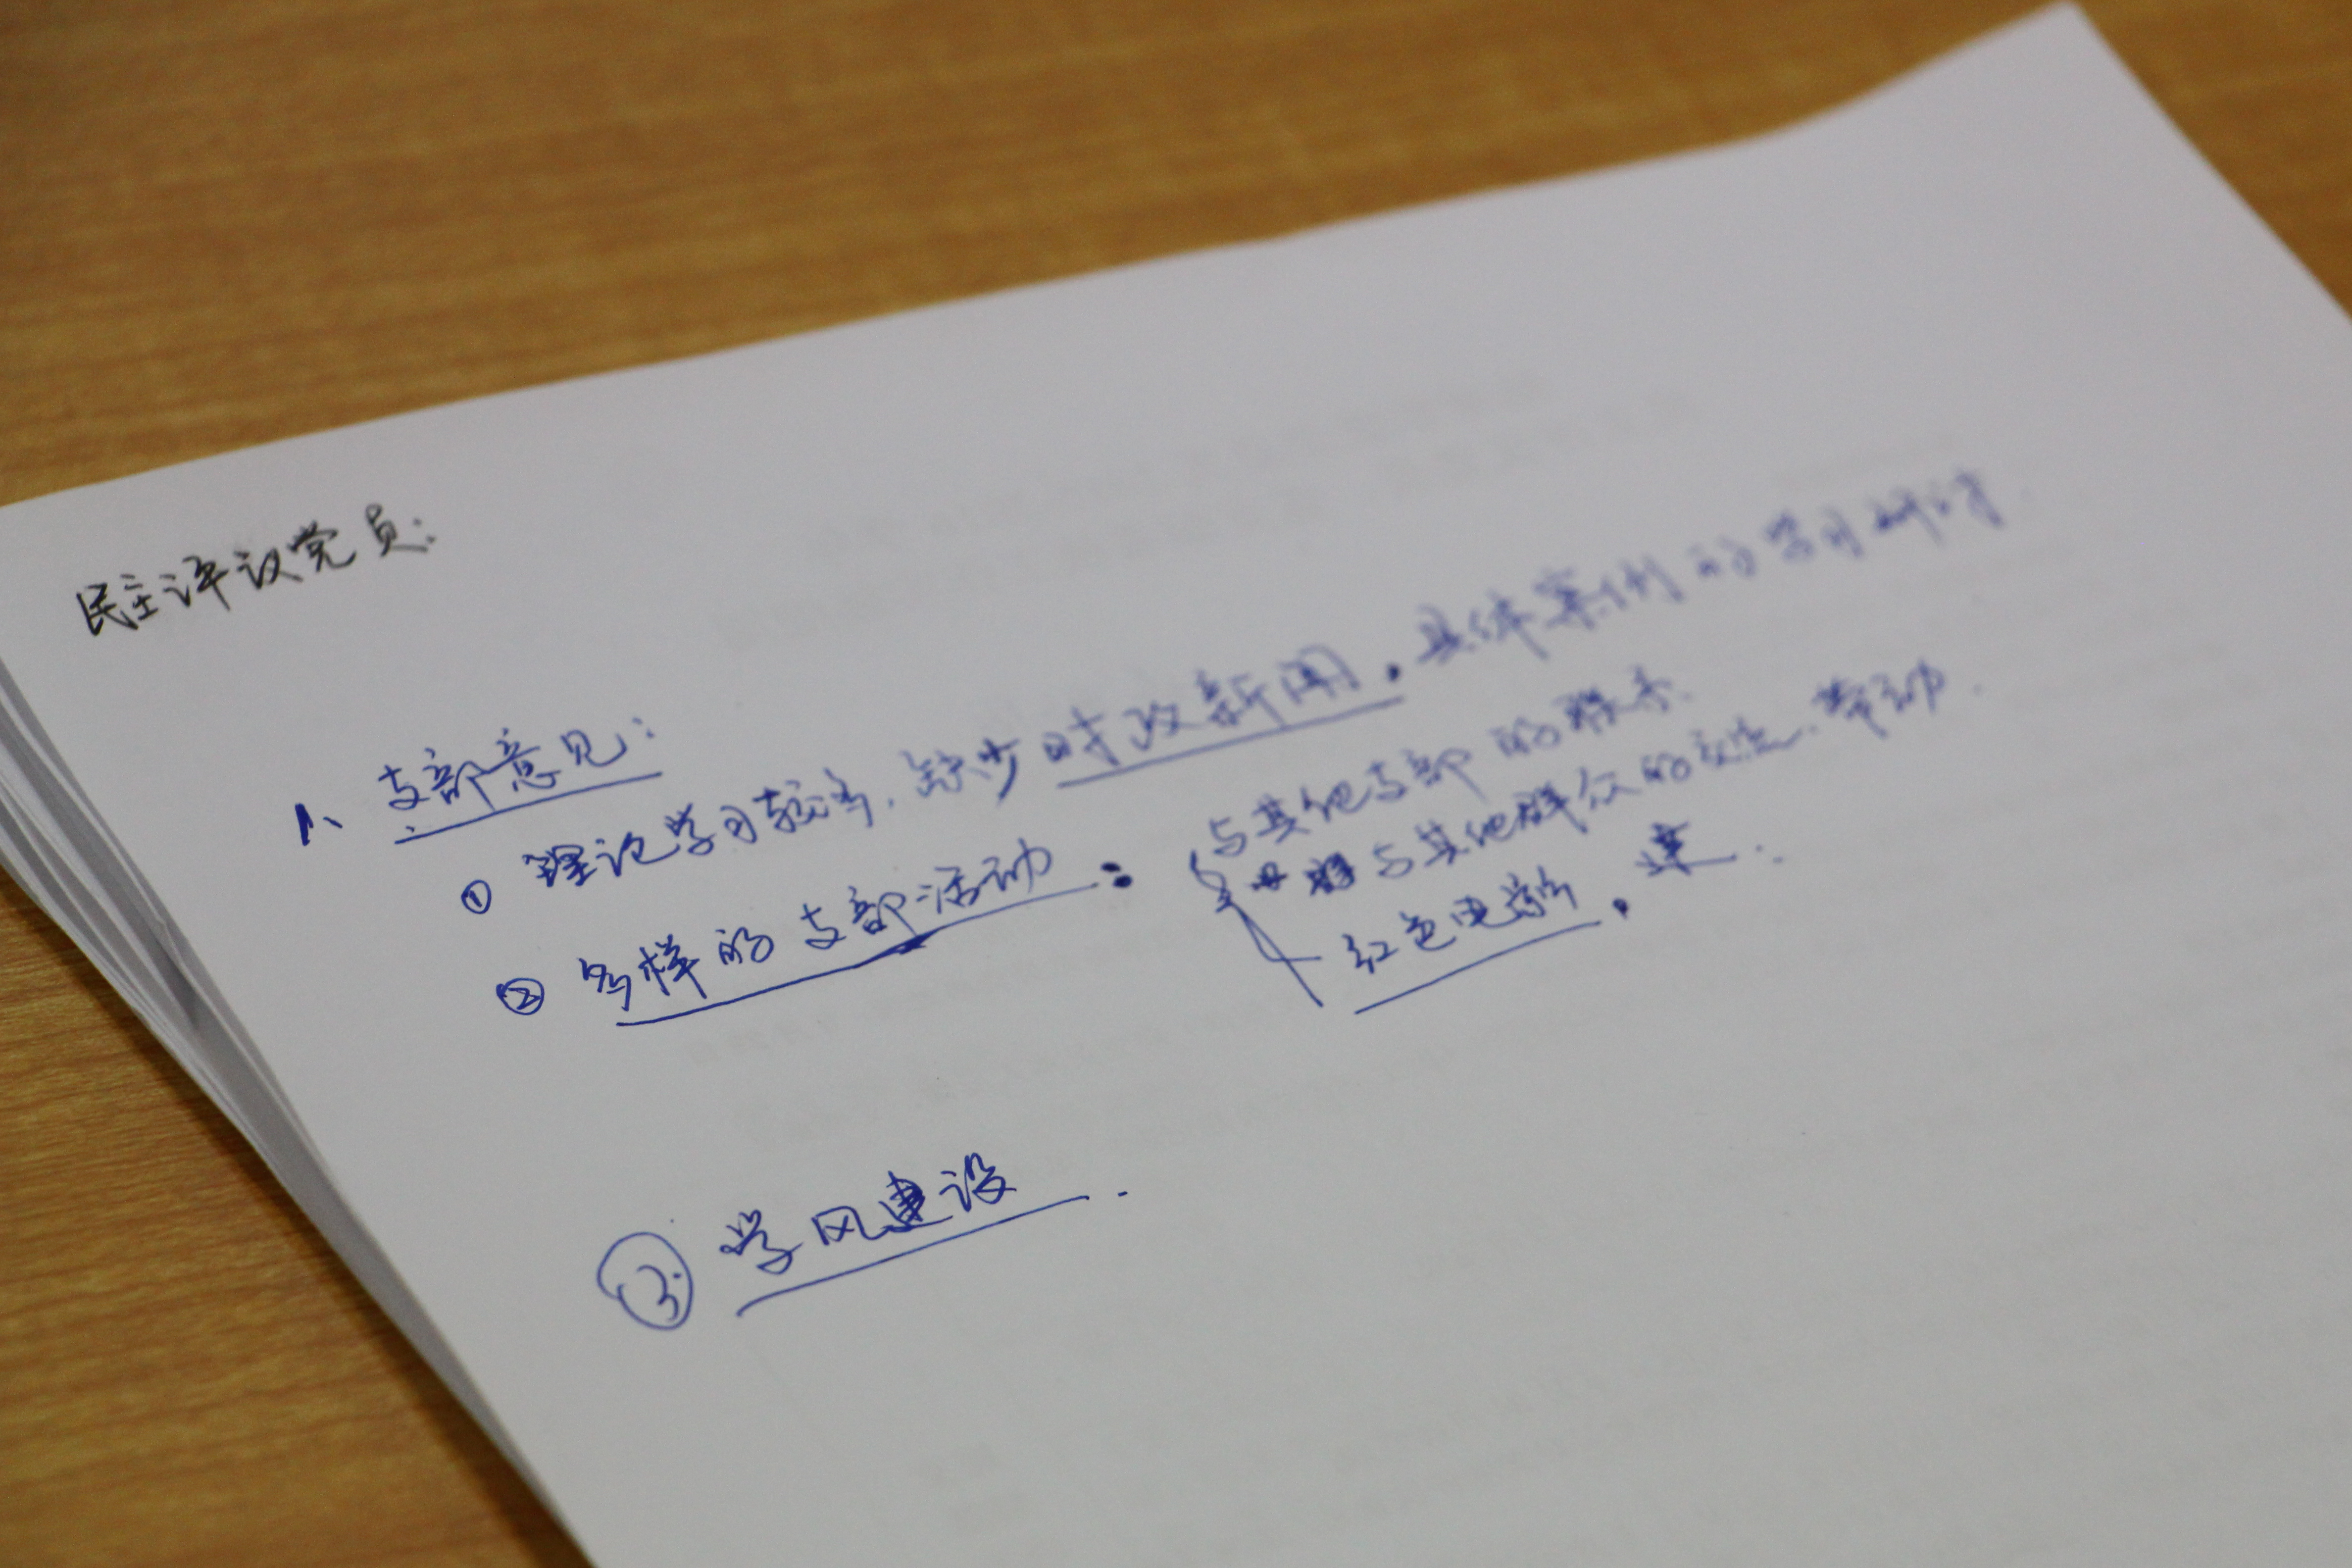 民主评议党员:
1、支部意见:
① 理论学习较多,缺少时政新闻,具体案例的学习研讨.
② 多样的支部活动:
与其他支部的联系.
与其他群众的交流、带动.
红色电影,
③ 学风建设.